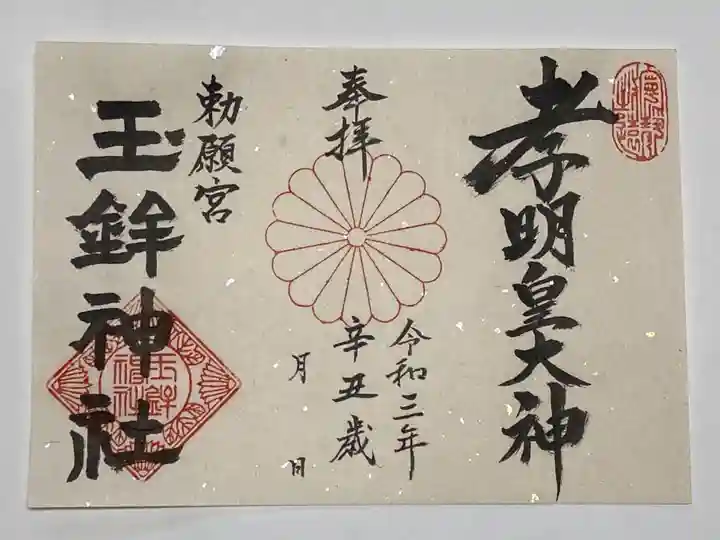 孝明皇大神
奉拝
令和三年
辛丑歳
月 日
勅願宮
玉鉾神社
玉鉾
神社